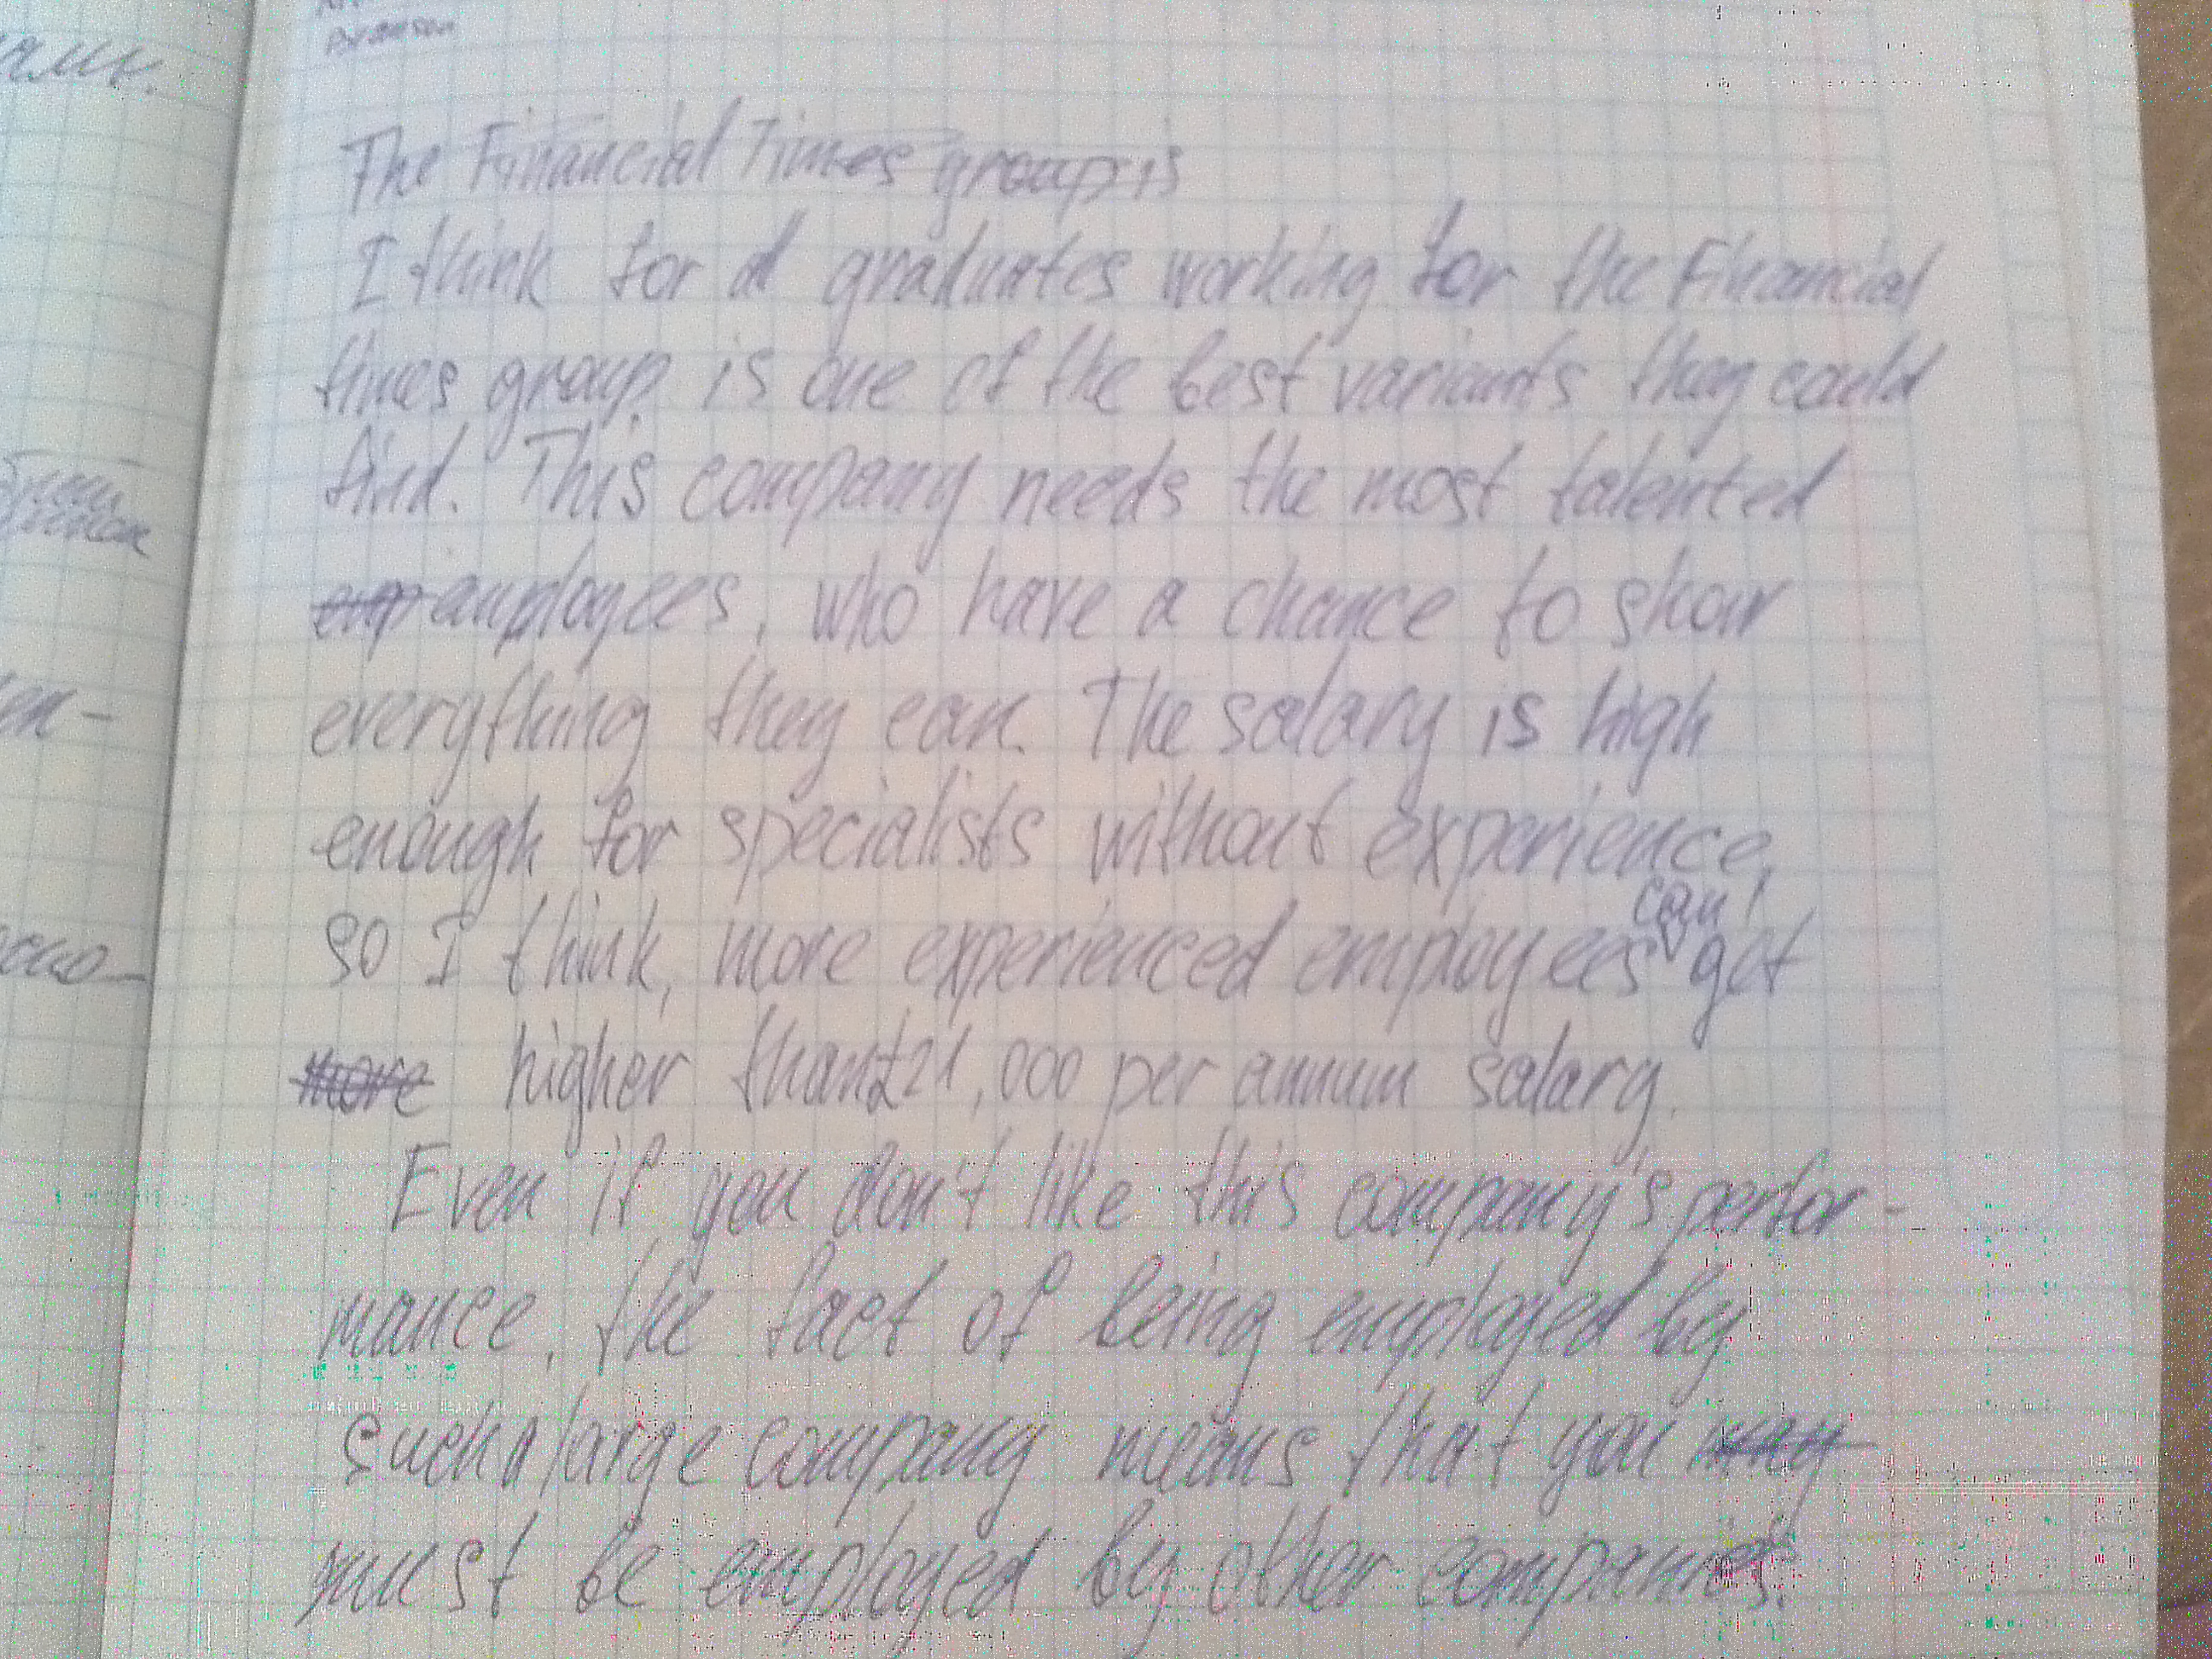 The Financial Times group is
I think for a graduates working for the Financial
times group is one of the best variants they could
find. This company needs the most talented
emp employees, who have a chance to show
everything they can. The salary is high
enough for specialists without experience,
so I think, more experienced employees can get
more higher than £21,000 per annum salary.
Even if you don't like this company's perfor-
mance, the fact of being employed by
such a large company means that you may
must be employed by other companies.